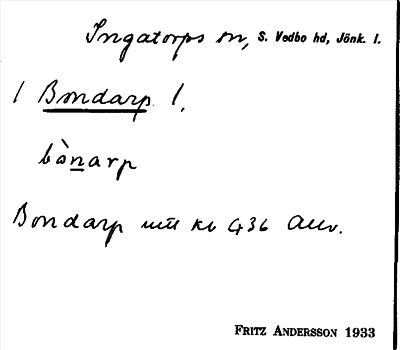 Ingatorps sn, S. Vedbo hd, Jönk. l.
1 Bondarp 1,
bònarp
Bondarp
FRITZ ANDERSSON 1933